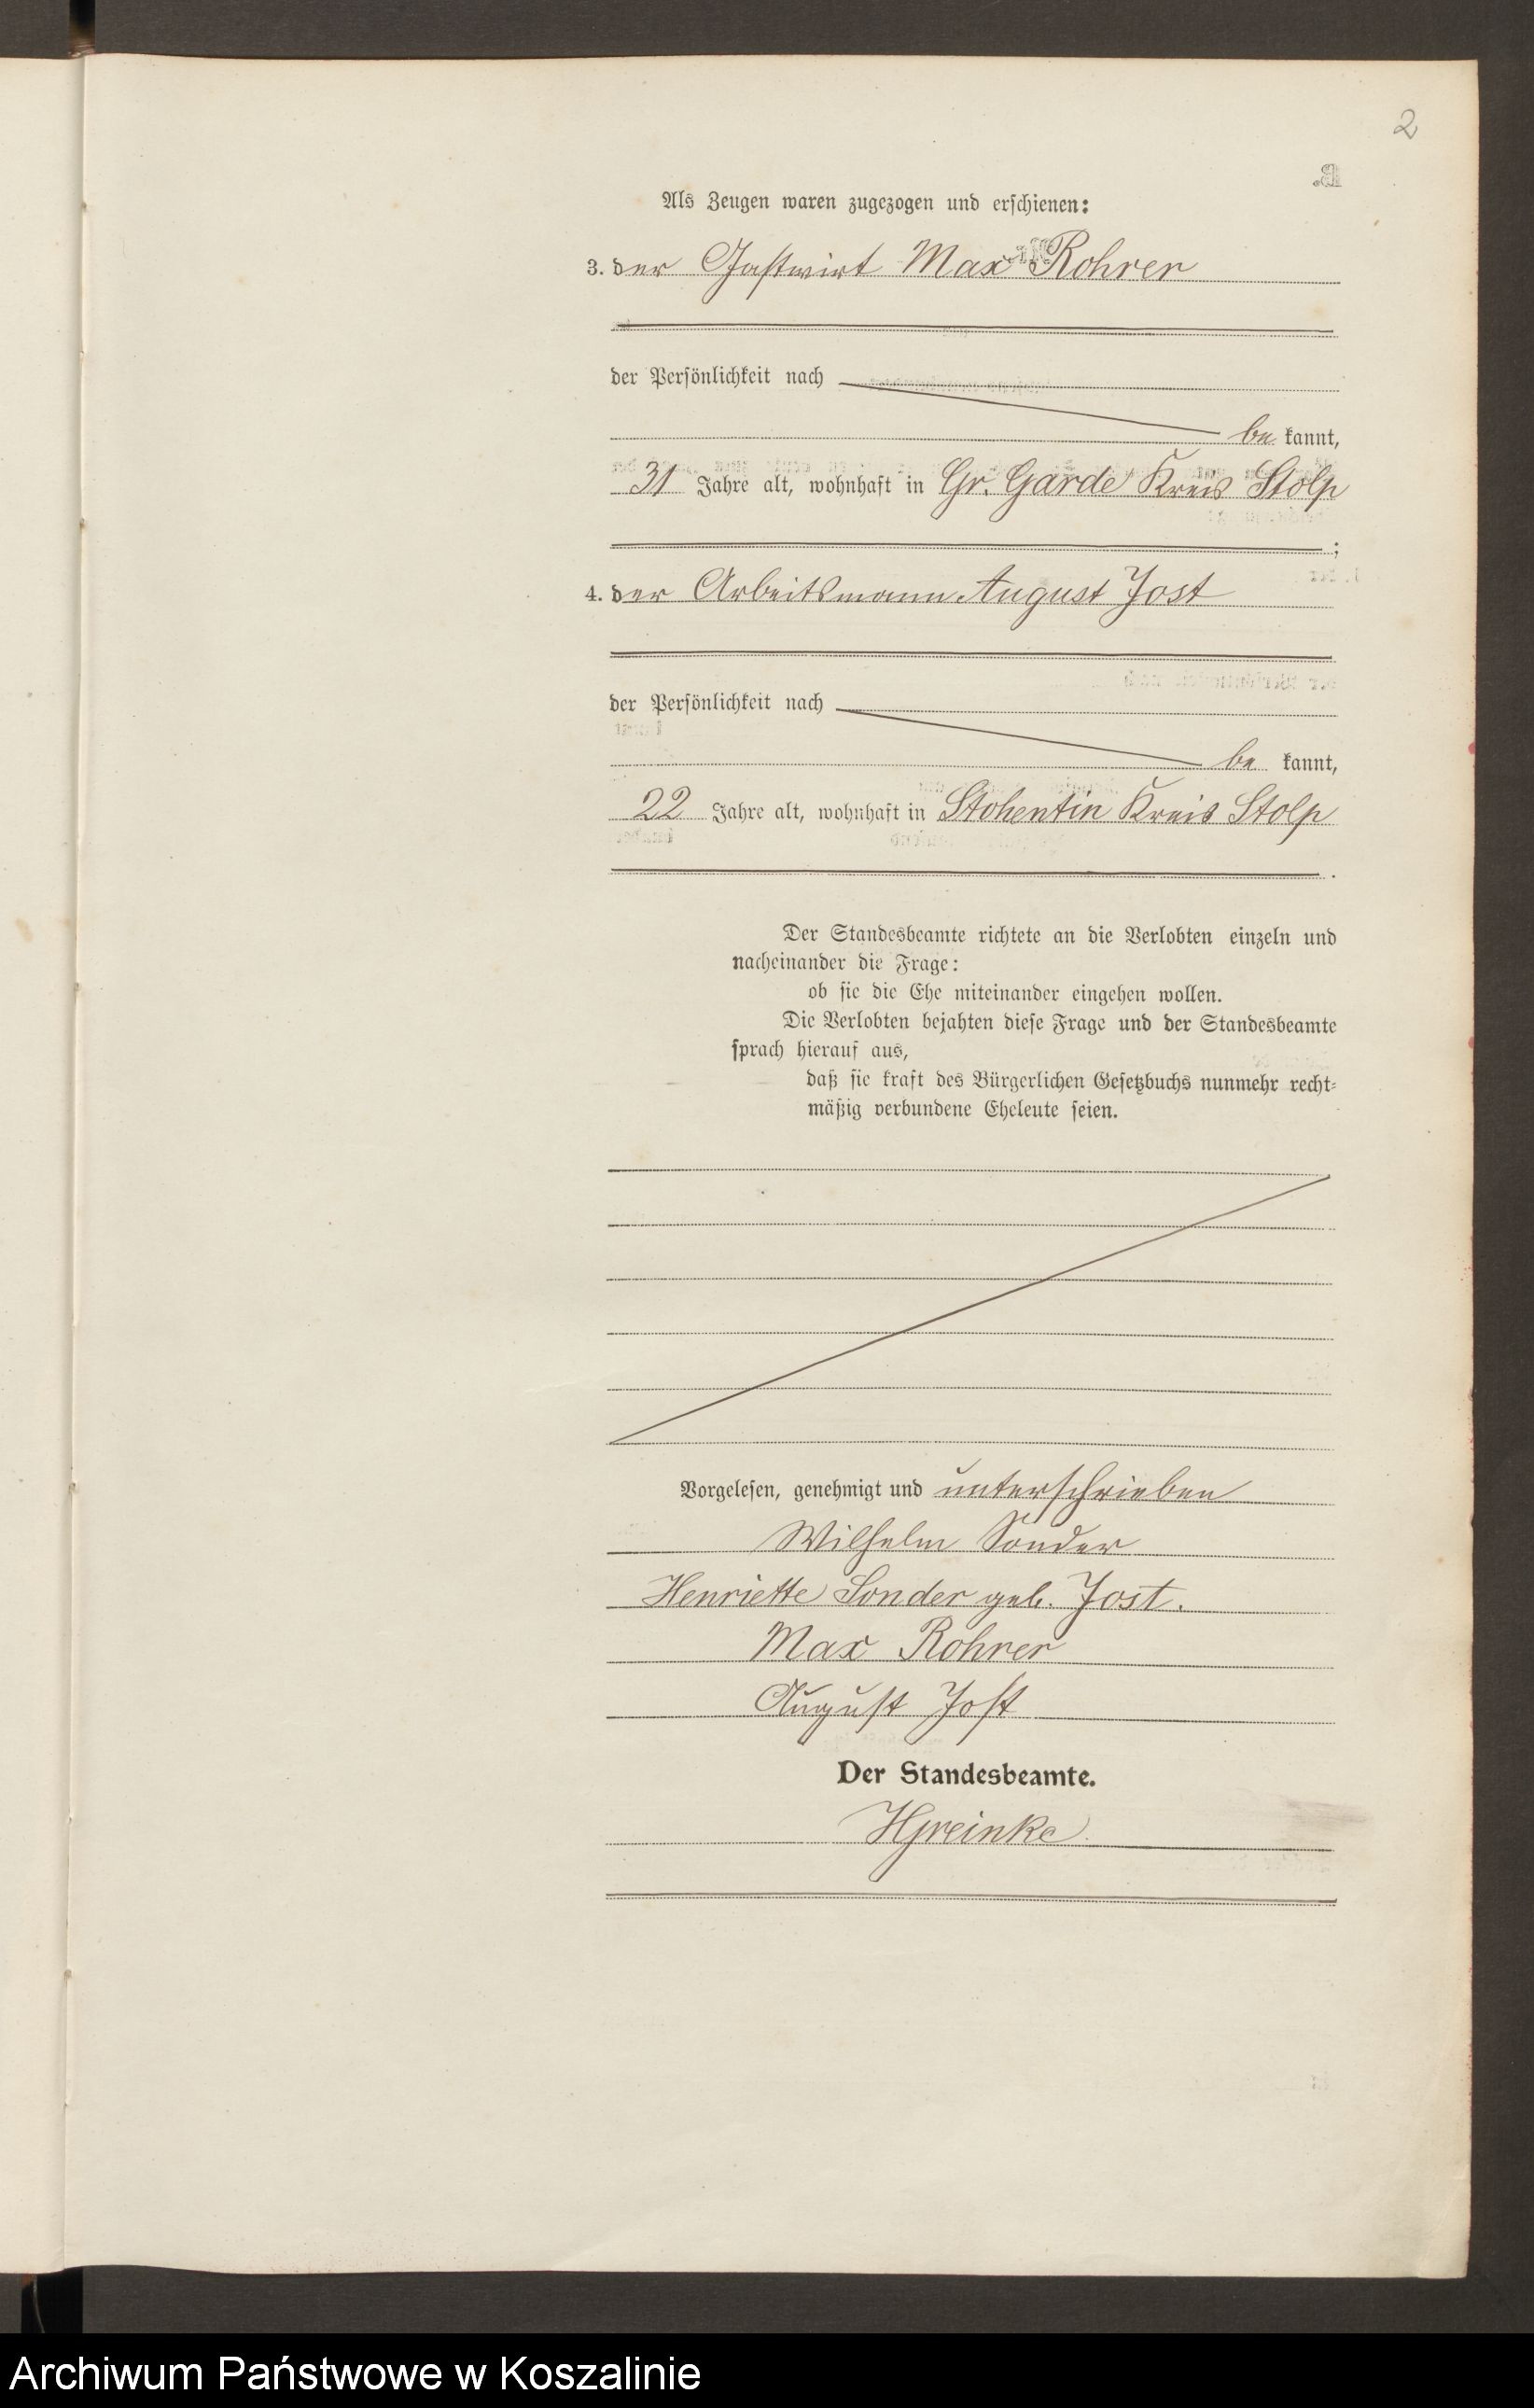 2
Als Zeugen waren zugezogen und erschienen:
3. der Gastwirt Max Rohrer
der Persönlichkeit nach
be kannt,
31 Jahre alt, wohnhaft in Gr. Garde Kreis Stolp
;
4. der Arbeitsmann August Jost
der Persönlichkeit nach
be kannt,
22 Jahre alt, wohnhaft in Stohentin Kreis Stolp
.
Der Standesbeamte richtete an die Verlobten einzeln und
nacheinander die Frage:
ob sie die Ehe miteinander eingehen wollen.
Die Verlobten bejahten diese Frage und der Standesbeamte
sprach hierauf aus,
daß sie kraft des Bürgerlichen Gesetzbuchs nunmehr recht-
mäßig verbundene Eheleute seien.
Vorgelesen, genehmigt und unterschrieben
Wilhelm Sonder
Henriette Sonder geb. Jost.
Max Rohrer
August Jost
Der Standesbeamte.
HGreinke
Archiwum Państwowe w Koszalinie